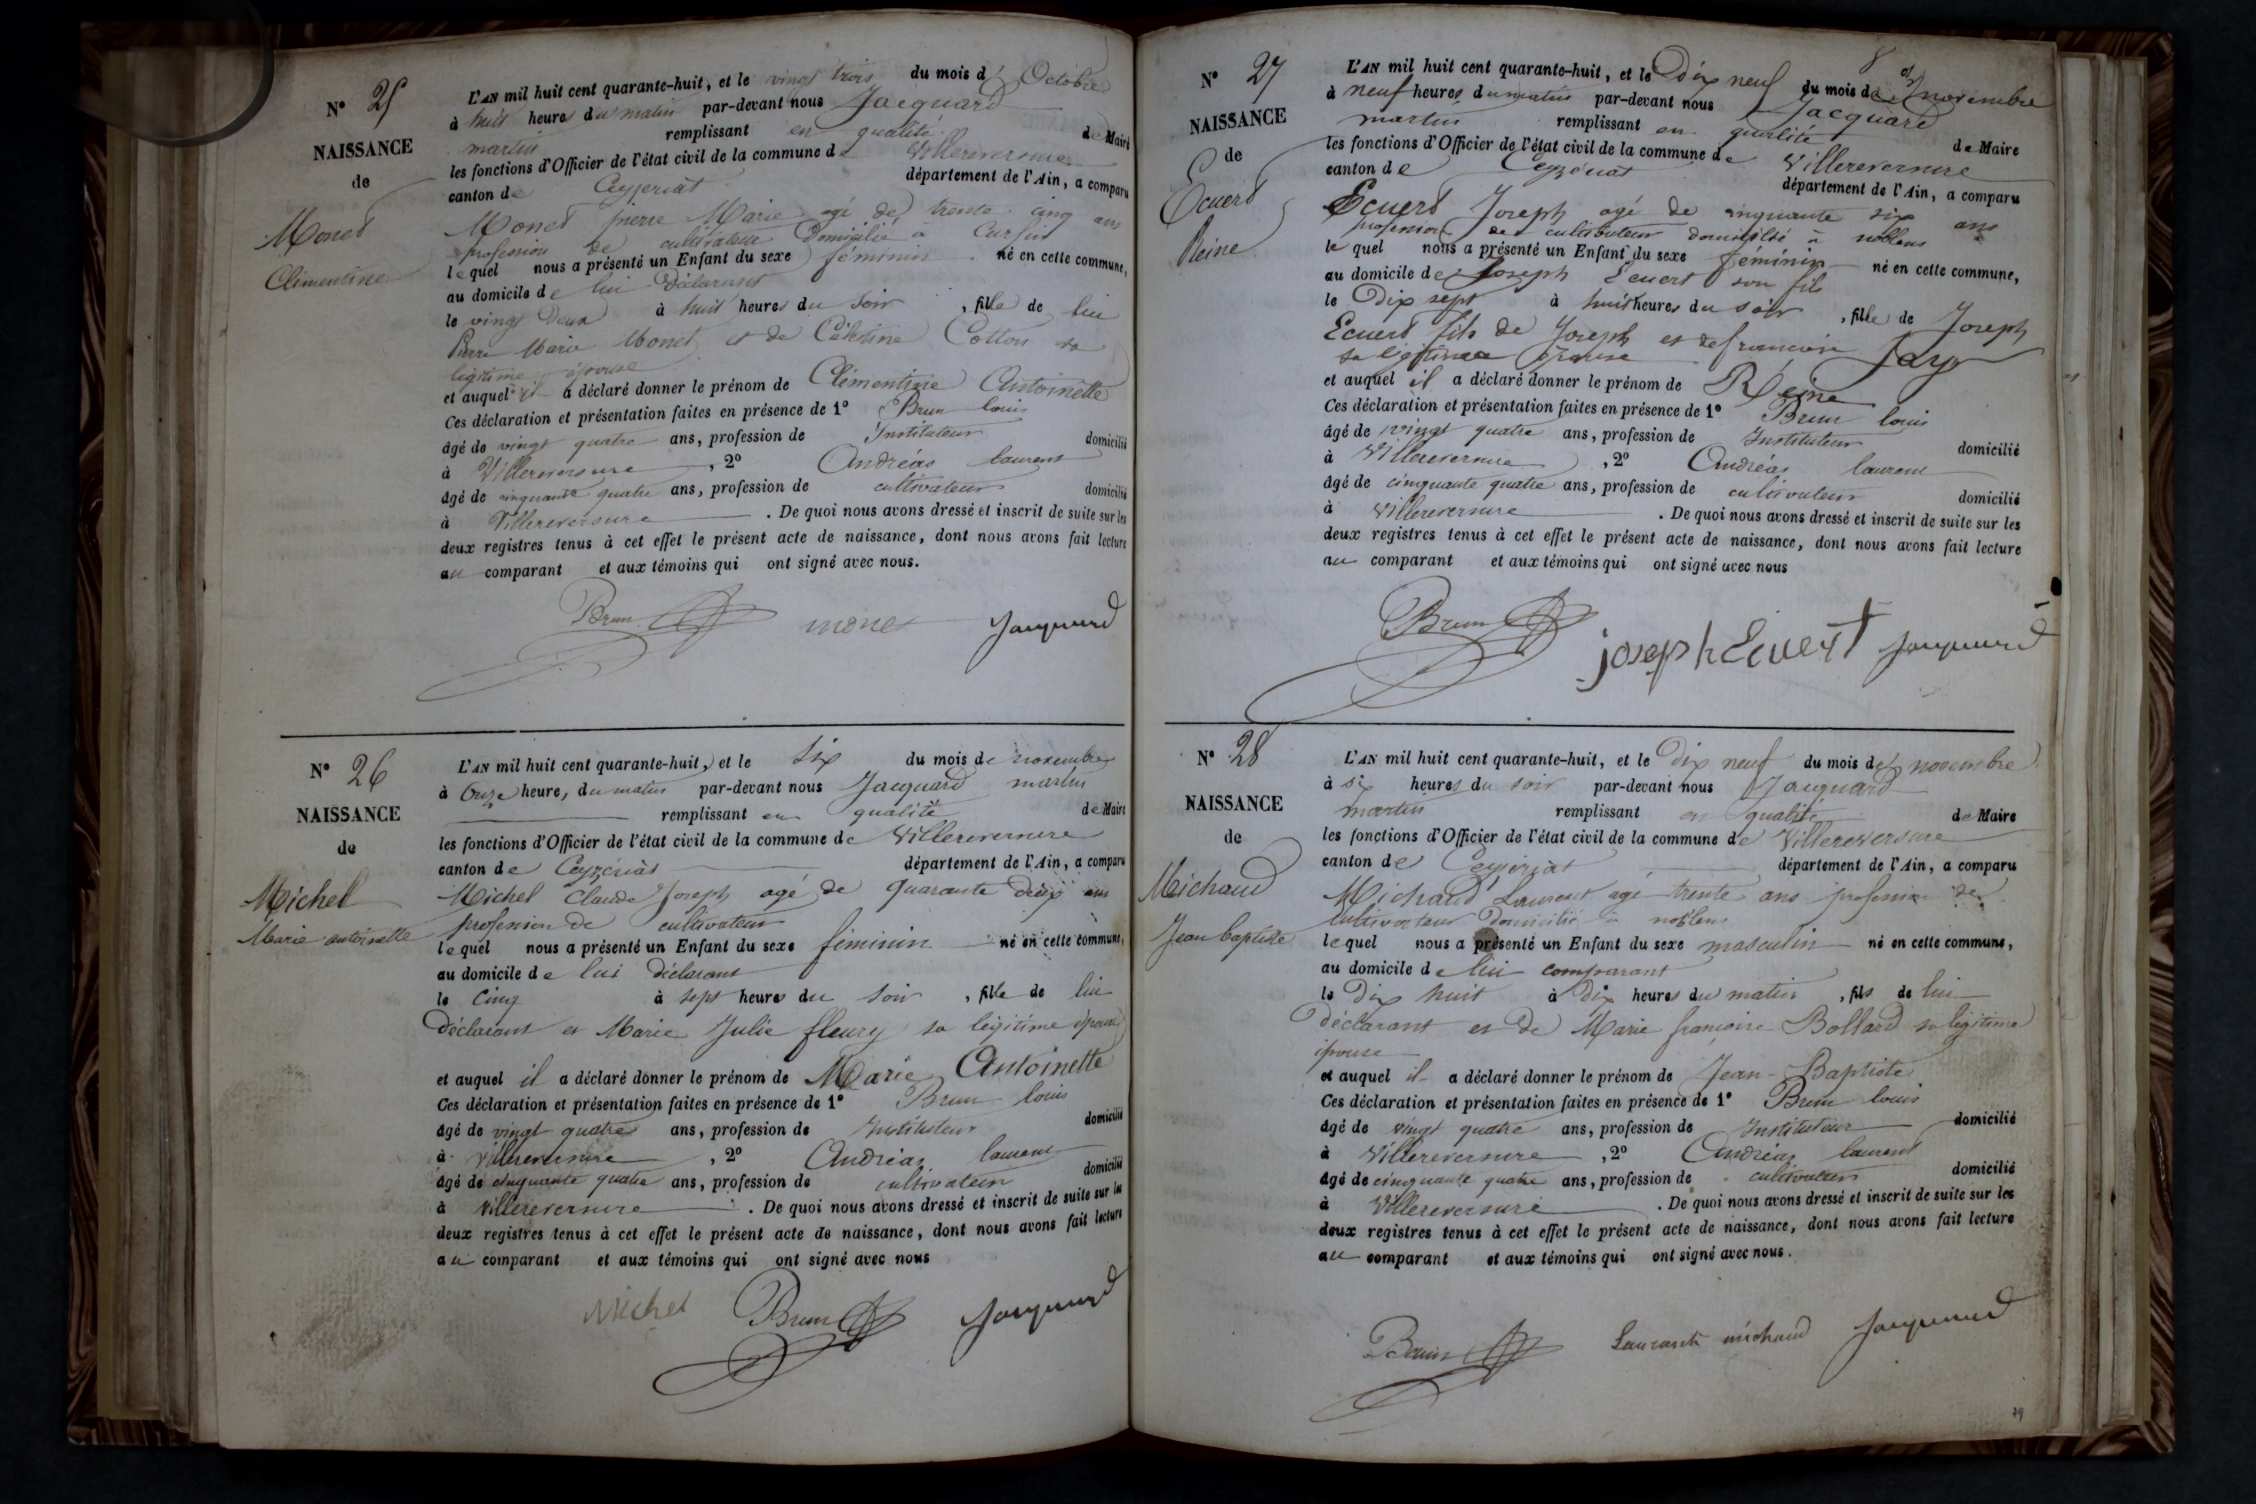 N° 25
NAISSANCE
de
Monet
Clémentine
L'AN mil huit cent quarante-huit, et le vingt trois du mois d' Octobre
à huit heures du matin par-devant nous Jacquard
martin remplissant en qualité de Maire
les fonctions d'Officier de l'état civil de la commune de Villereversure
canton de Ceyzeriat département de l'Ain, a comparu
Monet pierre Marie agé de trente cinq ans
profession de cultivateur Domicilié a
lequel nous a présenté un Enfant du sexe féminin né en cette commune,
au domicile de lui Déclarant
le vingt Deux à huit heures du Soir, fille de lui
Pierre Marie Monet et de Célestine Cotton sa
légitime épouse
et auquel il a déclaré donner le prénom de Clémentine Antoinette
Ces déclaration et présentation faites en présence de 1° Brun louis
âgé de vingt quatre ans, profession de Instituteur domicilié
à Villereversure, 2° Andréas laurent
âgé de cinquante quatre ans, profession de cultivateur domicilié
à Villereversure. De quoi nous avons dressé et inscrit de suite sur les
deux registres tenus à cet effet le présent acte de naissance, dont nous avons fait lecture
au comparant et aux témoins qui ont signé avec nous.
Brun monet Jacquard
N° 26
NAISSANCE
de
Michel
Marie antoinette
L'AN mil huit cent quarante-huit, et le Six du mois de novembre
à Onze heure, du matin par-devant nous Jacquard martin
remplissant en qualité de Maire
les fonctions d'Officier de l'état civil de la commune de Villereversure
canton de Ceyzériat département de l'Ain, a comparu
Michel Claude Joseph agé de quarante deux ans
profession de cultivateur
lequel nous a présenté un Enfant du sexe féminin né en cette commune,
au domicile de lui déclarant
le Cinq à sept heures du Soir, fille de lui
déclarant et Marie Julie fleury sa légitime épouse
et auquel il a déclaré donner le prénom de Marie Antoinette
Ces déclaration et présentation faites en présence de 1° Brun louis
âgé de vingt quatre ans, profession de Instituteur domicilié
à Villereversure, 2° Andréas laurent
âgé de cinquante quatre ans, profession de cultivateur domicilié
à Villereversure. De quoi nous avons dressé et inscrit de suite sur les
deux registres tenus à cet effet le présent acte de naissance, dont nous avons fait lecture
au comparant et aux témoins qui ont signé avec nous
Michel Brun Jacquard
N° 27
NAISSANCE
de
Ecuert
Reine
L'AN mil huit cent quarante-huit, et le Dix neuf du mois de novembre
à neuf heures du matin par-devant nous Jacquard
martin remplissant en qualité de Maire
les fonctions d'Officier de l'état civil de la commune de Villereversure
canton de Ceyzériat département de l'Ain, a comparu
Ecuert Joseph agé de cinquante six ans
profession de cultivateur domicilié à noblens
lequel nous a présenté un Enfant du sexe féminin né en cette commune,
au domicile de Joseph Ecuert son fils
le Dix sept à huit heures du soir, fille de Joseph
Ecuert fils de Joseph et de francoise Jay
sa légitime épouse
et auquel il a déclaré donner le prénom de Reine
Ces déclaration et présentation faites en présence de 1° Brun louis
âgé de vingt quatre ans, profession de Instituteur domicilié
à Villereversure, 2° Andréas laurent
âgé de cinquante quatre ans, profession de cultivateur domicilié
à Villereversure. De quoi nous avons dressé et inscrit de suite sur les
deux registres tenus à cet effet le présent acte de naissance, dont nous avons fait lecture
au comparant et aux témoins qui ont signé avec nous
Brun joseph Ecuert Jacquard
N° 28
NAISSANCE
de
Michaud
Jean baptiste
L'AN mil huit cent quarante-huit, et le Dix neuf du mois de novembre
à six heures du soir par-devant nous Jacquard
martin remplissant en qualité de Maire
les fonctions d'Officier de l'état civil de la commune de Villereversure
canton de Ceyzériat département de l'Ain, a comparu
Michaud Laurent agé trente ans profession de
cultivateur Domicilié à noblens
lequel nous a présenté un Enfant du sexe masculin né en cette commune,
au domicile de lui comparant
le Dix huit à Dix heures du matin, fils de lui
déclarant et de Marie françoise Bollard sa légitime
épouse
et auquel il a déclaré donner le prénom de Jean-Baptiste
Ces déclaration et présentation faites en présence de 1° Brun louis
âgé de vingt quatre ans, profession de Instituteur domicilié
à Villereversure, 2° Andréas laurent
âgé de cinquante quatre ans, profession de cultivateur domicilié
à Villereversure. De quoi nous avons dressé et inscrit de suite sur les
deux registres tenus à cet effet le présent acte de naissance, dont nous avons fait lecture
au comparant et aux témoins qui ont signé avec nous.
Brun Laurent michaud Jacquard